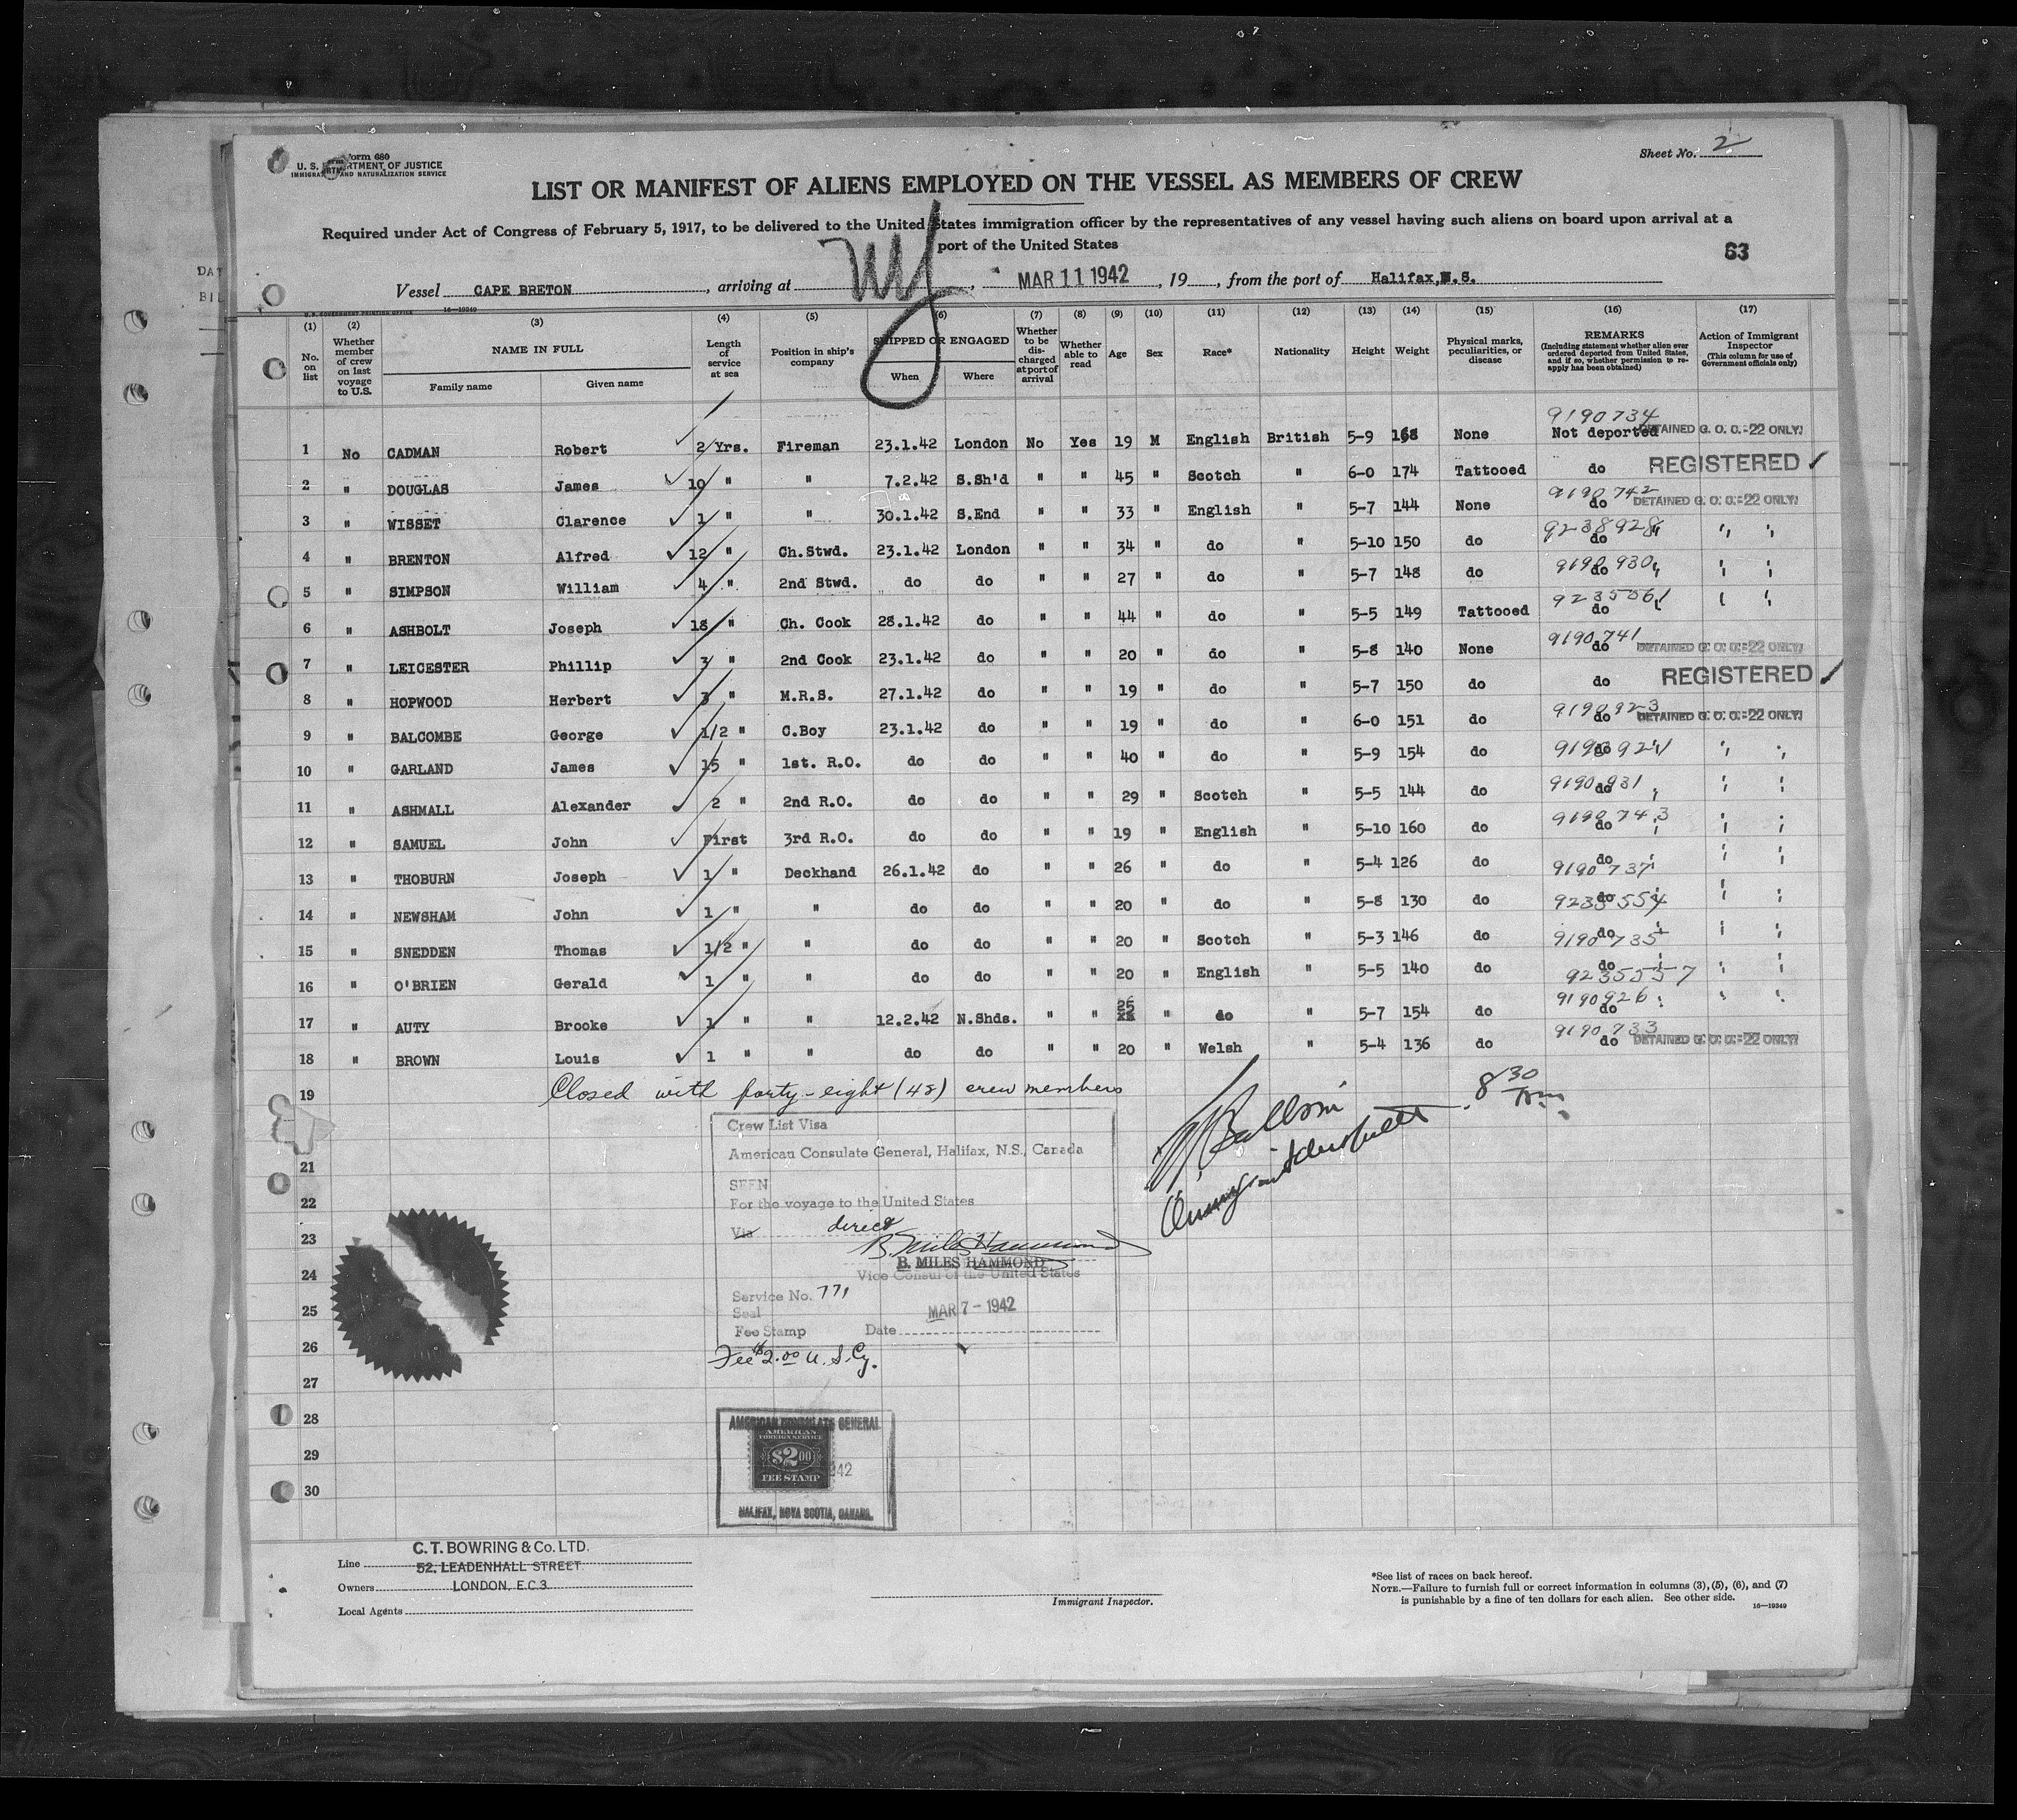 Form 680
U. S. DEPARTMENT OF JUSTICE
IMMIGRATION AND NATURALIZATION SERVICE
Sheet No. 2
LIST OR MANIFEST OF ALIENS EMPLOYED ON THE VESSEL AS MEMBERS OF CREW
Required under Act of Congress of February 5, 1917, to be delivered to the United States immigration officer by the representatives of any vessel having such aliens on board upon arrival at a
port of the United States
63
Vessel CAPE BRETON, arriving at NY, MAR 11 1942, 19, from the port of Halifax, N.S.
(1) (2) (3) (4) (5) (6) (7) (8) (9) (10) (11) (12) (13) (14) (15) (16) (17)
No. on list
Whether member of crew on last voyage to U.S.
NAME IN FULL
Family name
Given name
Length of service at sea
Position in ship's company
SHIPPED OR ENGAGED
When
Where
Whether to be discharged at port of arrival
Whether able to read
Age
Sex
Race*
Nationality
Height
Weight
Physical marks, peculiarities, or disease
REMARKS
(Including statement whether alien ever ordered deported from United States, and if so, whether permission to reapply has been obtained)
Action of Immigrant Inspector
(This column for use of Government officials only)
1 No CADMAN Robert 2 Yrs. Fireman 23.1.42 London No Yes 19 M English British 5-9 168 None 9190734 Not deported DETAINED G. O. C.-22 ONLY
2 " DOUGLAS James 10 " " 7.2.42 S.Sh'd " " 45 " Scotch " 6-0 174 Tattooed do REGISTERED
3 " WISSET Clarence 1 " " 30.1.42 S.End " " 33 " English " 5-7 144 None 9190742 do DETAINED G. O. C.-22 ONLY
4 " BRENTON Alfred 12 " Ch.Stwd. 23.1.42 London " " 34 " do " 5-10 150 do 9238928 do " "
5 " SIMPSON William 4 " 2nd Stwd. do do " " 27 " do " 5-7 148 do 9190930 do " "
6 " ASHBOLT Joseph 18 " Ch. Cook 28.1.42 do " " 44 " do " 5-5 149 Tattooed do " "
7 " LEICESTER Phillip 3 " 2nd Cook 23.1.42 do " " 20 " do " 5-8 140 None 9190741 do DETAINED G. O. C.-22 ONLY
8 " HOPWOOD Herbert 3 " M.R.S. 27.1.42 do " " 19 " do " 5-7 150 do do REGISTERED
9 " BALCOMBE George 1/2 " C.Boy 23.1.42 do " " 19 " do " 6-0 151 do 9190923 do DETAINED G. O. C.-22 ONLY
10 " GARLAND James 15 " 1st. R.O. do do " " 40 " do " 5-9 154 do do " "
11 " ASHMALL Alexander 2 " 2nd R.O. do do " " 29 " Scotch " 5-5 144 do 9190931 do " "
12 " SAMUEL John First 3rd R.O. do do " " 19 " English " 5-10 160 do 9190743 do " "
13 " THOBURN Joseph 1 " Deckhand 26.1.42 do " " 26 " do " 5-4 126 do do 9190737 " "
14 " NEWSHAM John 1 " " do do " " 20 " do " 5-8 130 do do 9235554 " "
15 " SNEDDEN Thomas 1/2 " " do do " " 20 " Scotch " 5-3 146 do do 9190735 " "
16 " O'BRIEN Gerald 1 " " do do " " 20 " English " 5-5 140 do do 9235557 " "
17 " AUTY Brooke 1 " " 12.2.42 N.Shds. " " 25 " do " 5-7 154 do 9190926 do " "
18 " BROWN Louis 1 " " do do " " 20 " Welsh " 5-4 136 do 9190733 do DETAINED G. O. C.-22 ONLY
19 Closed with forty-eight (48) crew members
8 30
Crew List Visa
American Consulate General, Halifax, N.S., Canada
21
SEEN
22 For the voyage to the United States
23 Via direct
B. Miles Hammond
B. MILES HAMMOND
24 Vice Consul of the United States
Service No. 771
25 Seal MAR 7 - 1942
Fee Stamp Date
26
Fee $2.00 U.S.Cy.
27
28
AMERICAN CONSULATE GENERAL
AMERICAN
FOREIGN SERVICE
29 $2.00
FEE STAMP
30
HALIFAX, NOVA SCOTIA, CANADA.
C. T. BOWRING & Co. LTD.
Line 52, LEADENHALL STREET
Owners LONDON, E.C.3
Local Agents
Immigrant Inspector.
*See list of races on back hereof.
NOTE.—Failure to furnish full or correct information in columns (3), (5), (6), and (7)
is punishable by a fine of ten dollars for each alien. See other side.
16—19349